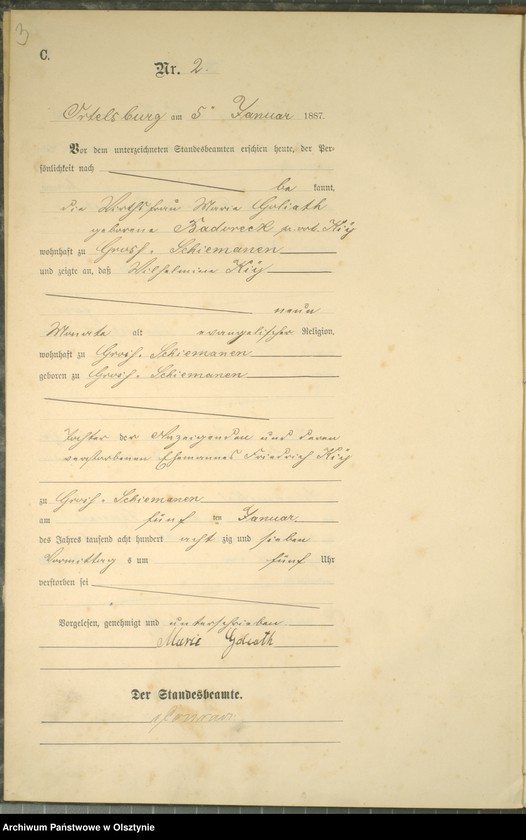 3
C.
Nr. 2.
Ortelsburg am 5 Januar 1887.
Vor dem unterzeichneten Standesbeamten erschien heute, der Per-
sönlichkeit nach
be kannt,
die Wirthsfrau Marie Goliath
geborene Badoreck
wohnhaft zu Groß-Schiemanen
und zeigte an, daß Wilhelmine Kiy
neun
Monate alt evangelischer Religion,
wohnhaft zu Groß-Schiemanen
geboren zu Groß-Schiemanen
Tochter der Anzeigenden und deren
verstorbenen Ehemannes Friedrich Kiy
zu Groß-Schiemanen
am fünf ten Januar
des Jahres tausend acht hundert acht zig und sieben
Vormittag s um fünf Uhr
verstorben sei
Vorgelesen, genehmigt und unterschrieben
Marie Goliath
Der Standesbeamte.
Archiwum Państwowe w Olsztynie